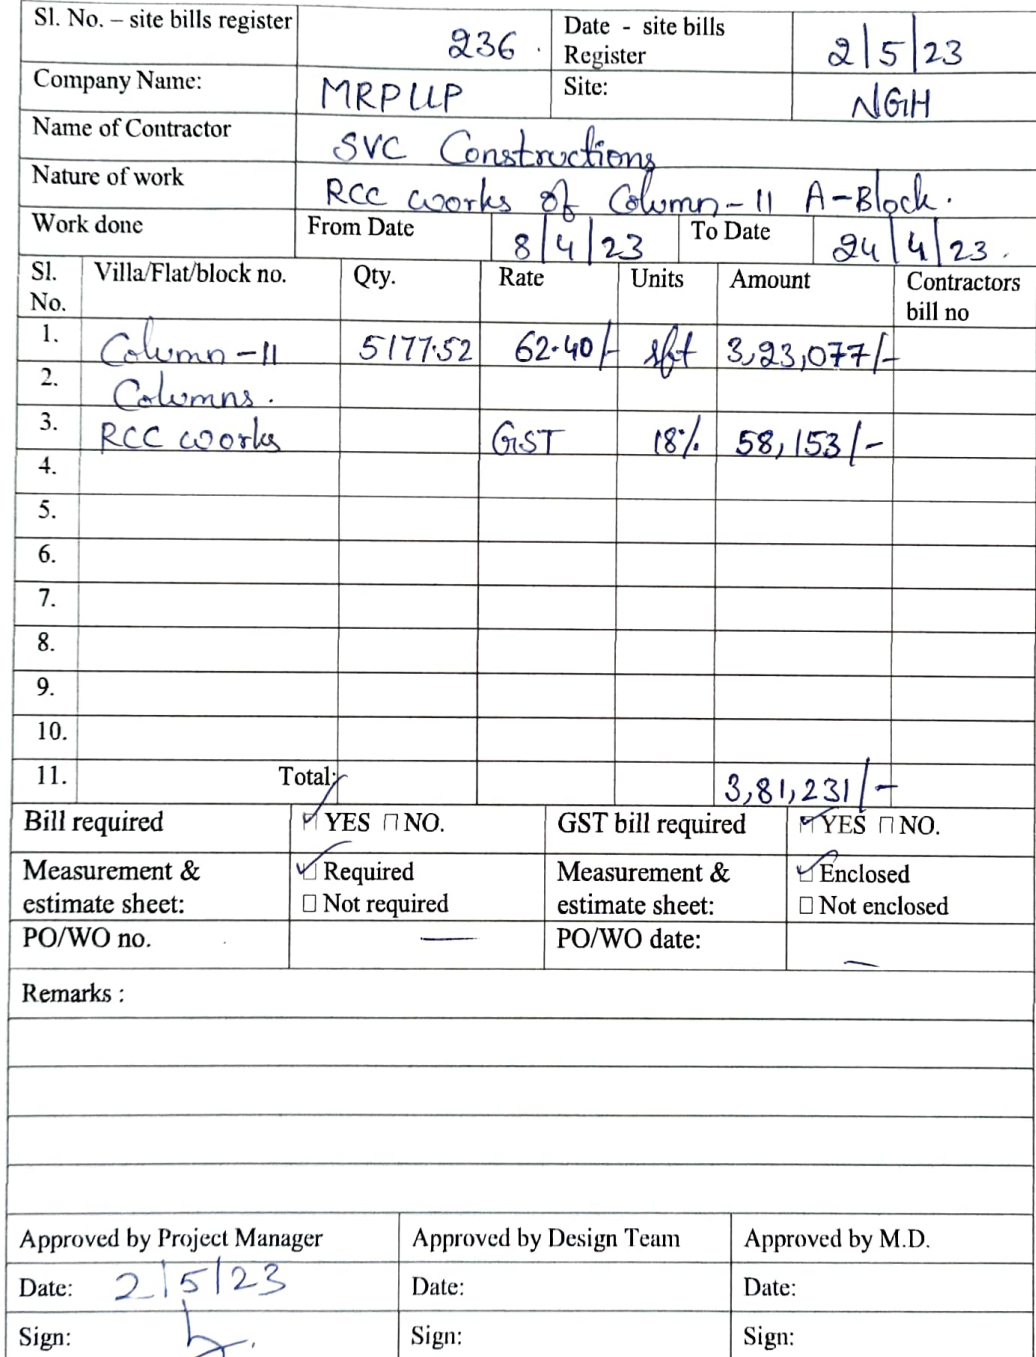 Sl. No. – site bills register 236. Date - site bills Register 2/5/23
Company Name: MRPLLP Site: NGH
Name of Contractor SVC Constructions
Nature of work RCC works of Column-11 A-Block.
Work done From Date 8/4/23 To Date 24/4/23.
Sl. No. Villa/Flat/block no. Qty. Rate Units Amount Contractors bill no
1. Column-11 5177.52 62.40/- sft 3,23,077/-
2. Columns.
3. RCC works GST 18% 58,153/-
4.
5.
6.
7.
8.
9.
10.
11. Total: 3,81,231/-
Bill required YES NO. GST bill required YES NO.
Measurement & estimate sheet: Required Measurement & estimate sheet: Enclosed
Not required Not enclosed
PO/WO no. — PO/WO date: —
Remarks :
Approved by Project Manager Approved by Design Team Approved by M.D.
Date: 2/5/23 Date: Date:
Sign: Sign: Sign: